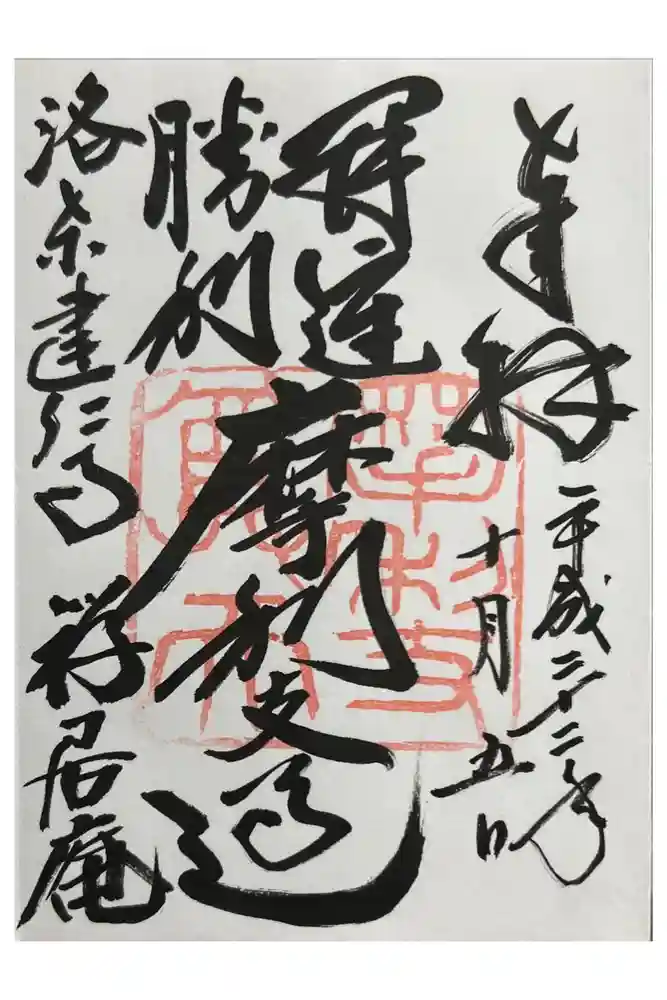 奉拝
平成二十二年
十月五日
開運
勝利
摩利支天
洛東建仁寺 禅居庵